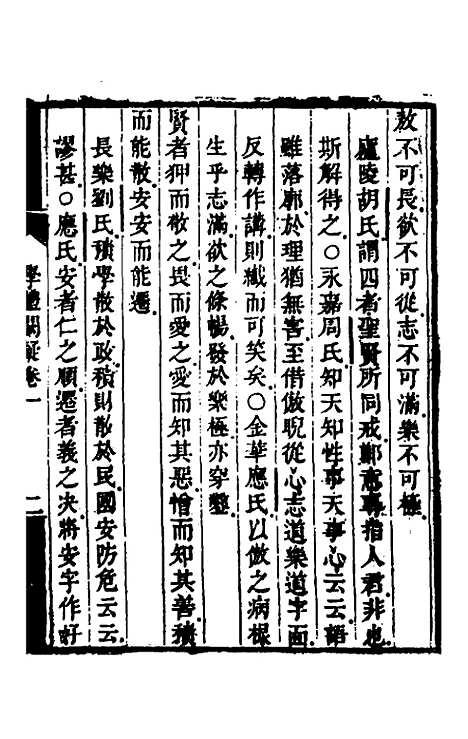 敖不可長欲不可從志不可滿樂不可極
廬陵胡氏謂四者聖賢所同戒鄭意專指人君非也
斯解得之○永嘉周氏知天知性事天事心云云語
雖落廓於理猶無害至借倣睨從心志道樂道字面
反轉作講則纖而可笑矣○金華應氏以傲之病根
生乎志滿欲之條暢發於樂極亦穿鑿
賢者狎而敬之畏而愛之愛而知其惡憎而知其善積
而能散安安而能遷
長樂劉氏積學散於政積則散於民國安防危云云
謬甚○應氏安者仁之順遷者義之決將安字作好
學禮闕疑卷一
二